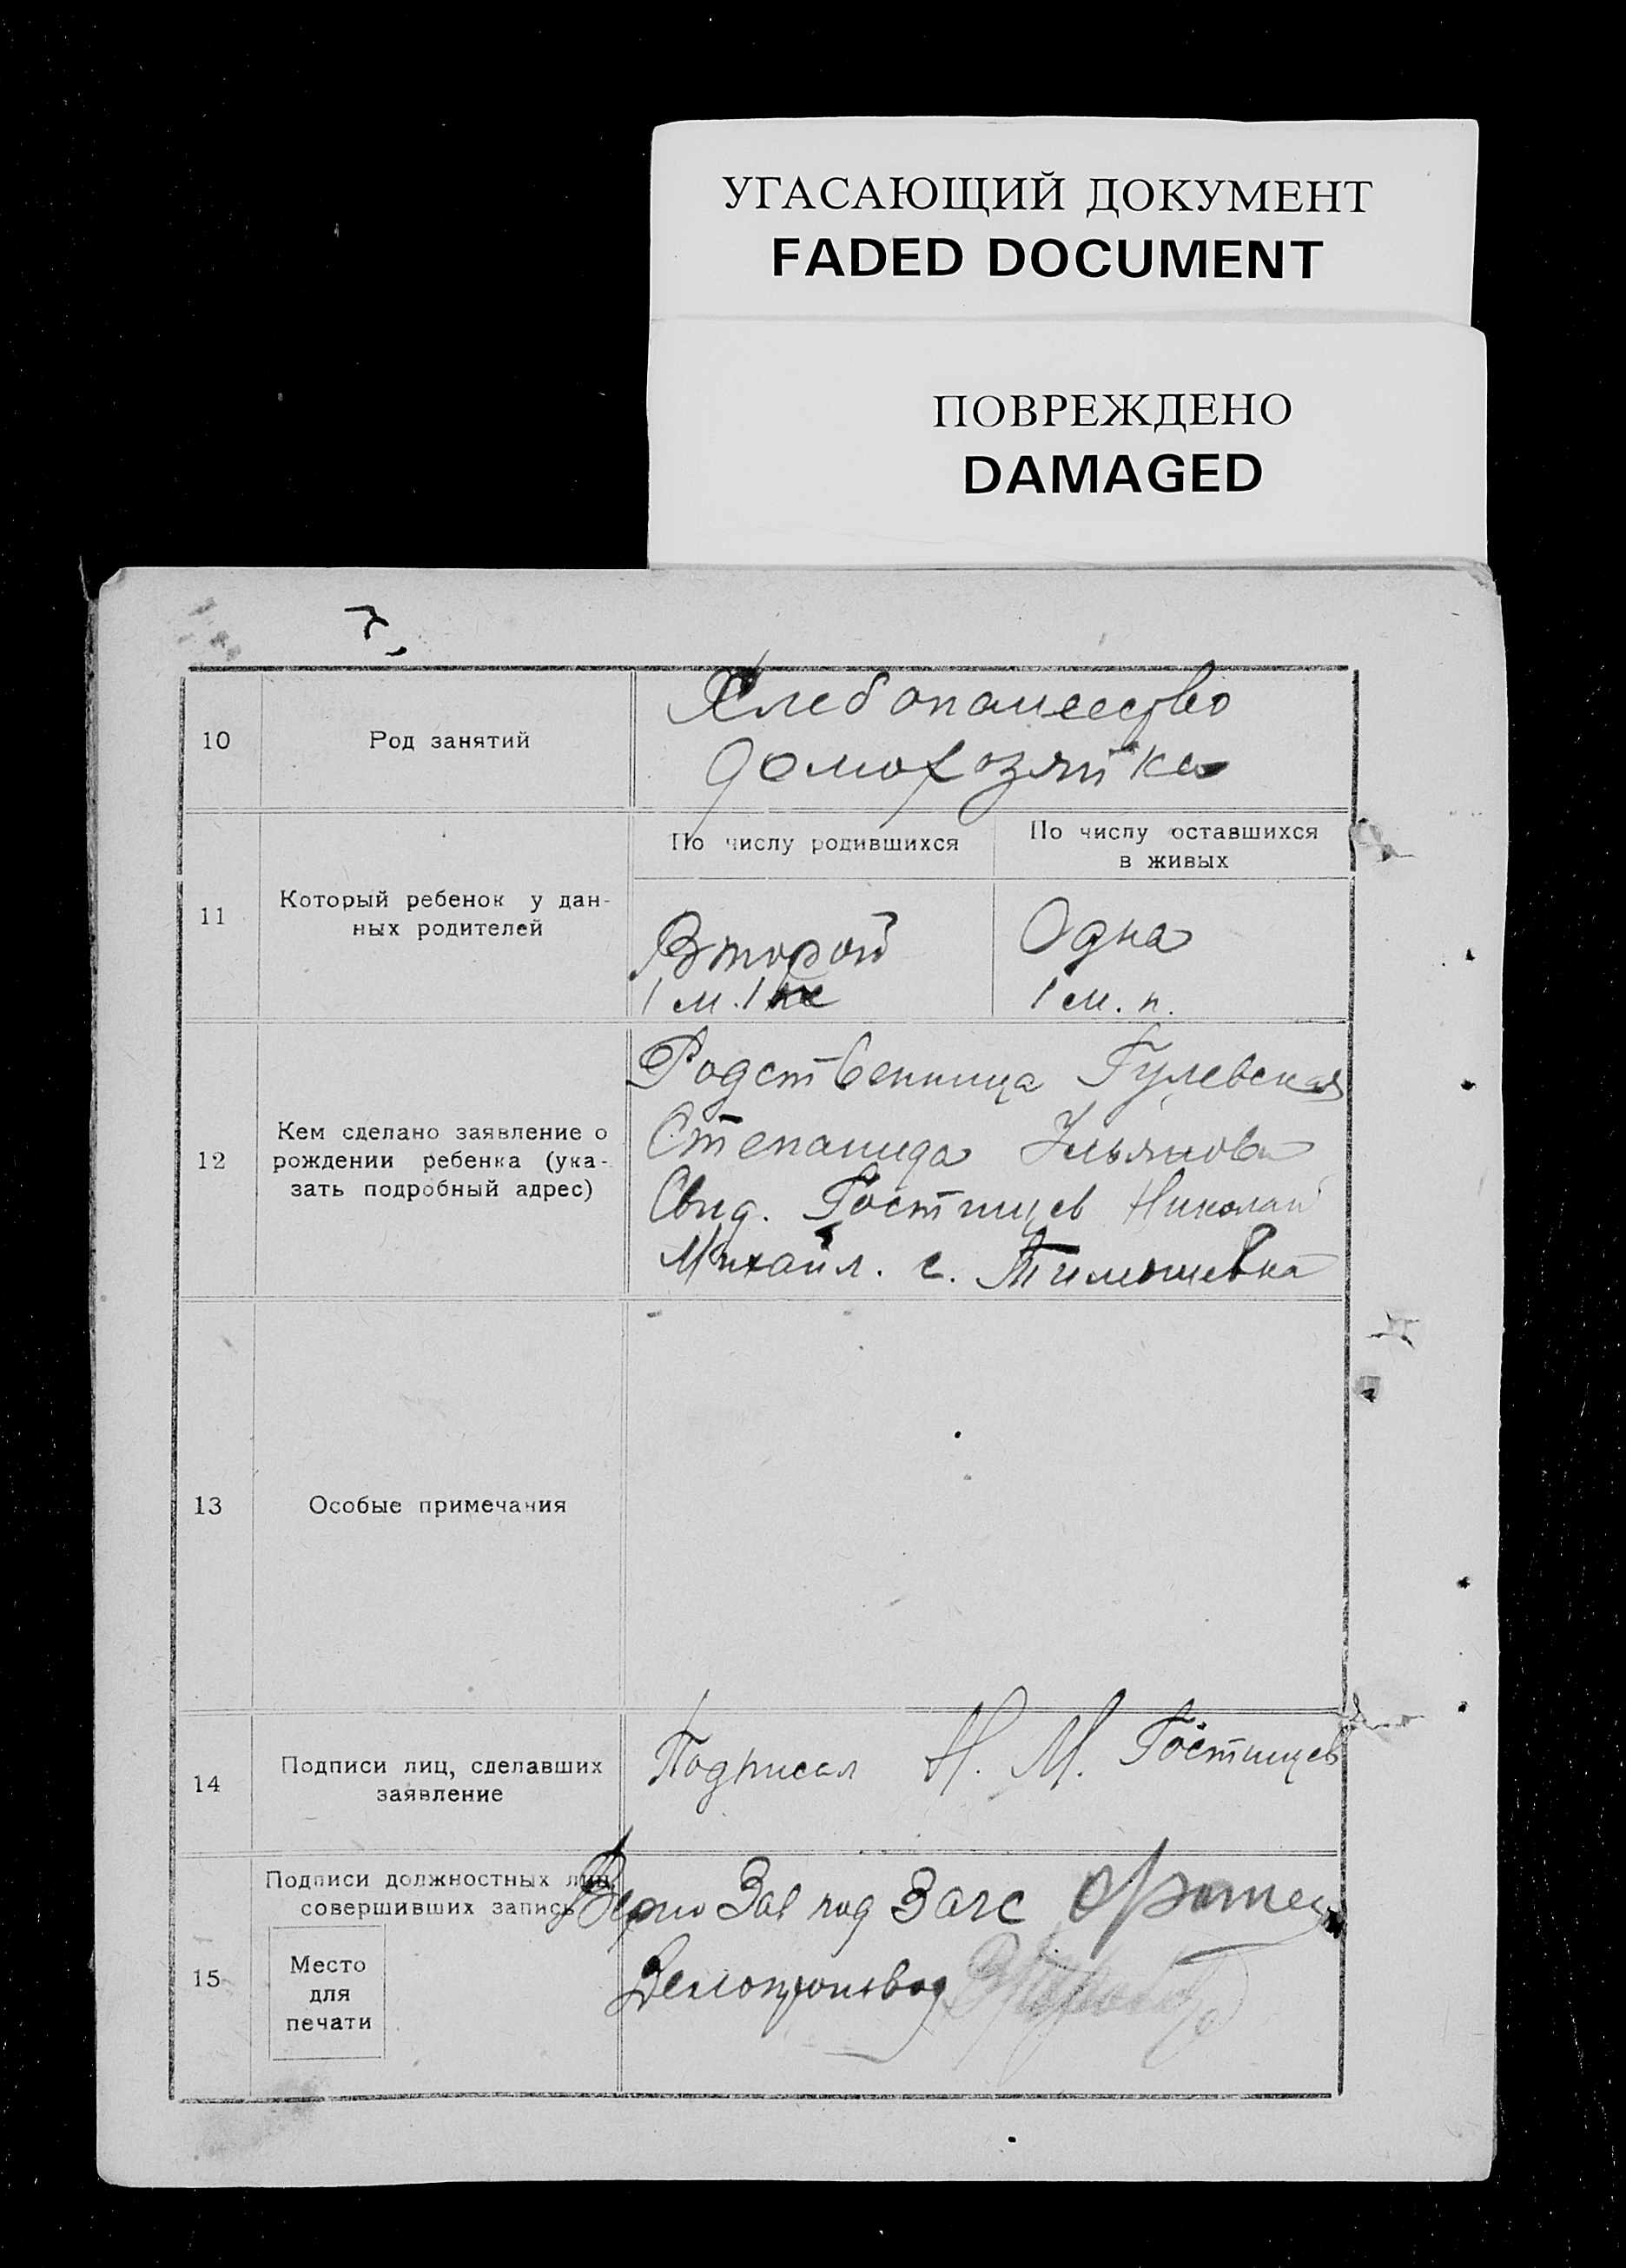 УГАСАЮЩИЙ ДОКУМЕНТ
FADED DOCUMENT
ПОВРЕЖДЕНО
DAMAGED
10
Род занятий
Хлебопашество
домохозяйка
11
Который ребенок у дан-
ных родителей
По числу родившихся
По числу оставшихся
в живых
Второй
1 м. 1
Одна
1 м. п.
12
Кем сделано заявление о
рождении ребенка (ука-
зать подробный адрес)
Родственница Гулевская
Степанида Ульянова
Свид. Гостищев Николай
Михайл. с. Тимошевка
13
Особые примечания
14
Подписи лиц, сделавших
заявление
Подписал Н. М. Гостищев
15
Подписи должностных лиц,
совершивших запись
Место
для
печати
Верно Зав под Загс
Делопроизвод